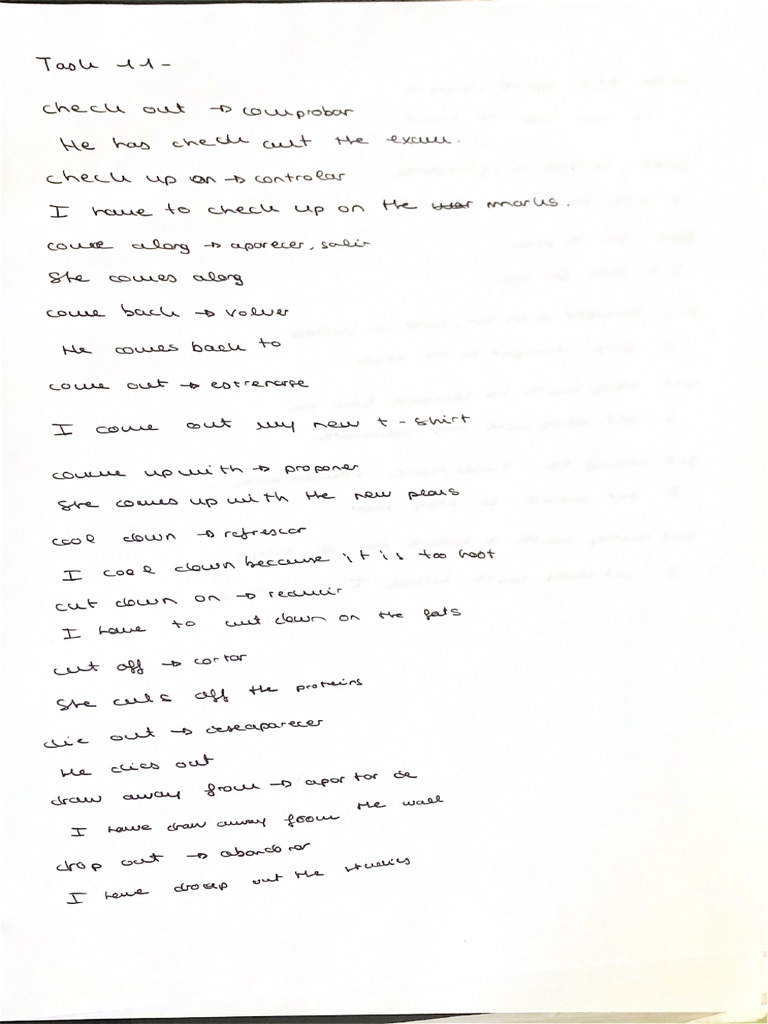 Task 11-
check out → comprobar
He has check out the exam.
check up on → controlar
I have to check up on the marks.
come along → aparecer, salir
She comes along
come back → volver
He comes back to
come out → estrenarse
I come out my new t-shirt
come up with → proponer
She comes up with the new plans
cool down → refrescar
I cool down because it is too hot
cut down on → reducir
I have to cut down on the fats
cut off → cortar
She cuts off the proteins
die out → desaparecer
He dies out
draw away from → apartar de
I have draw away from the wall
drop out → abandonar
I have drop out the studies